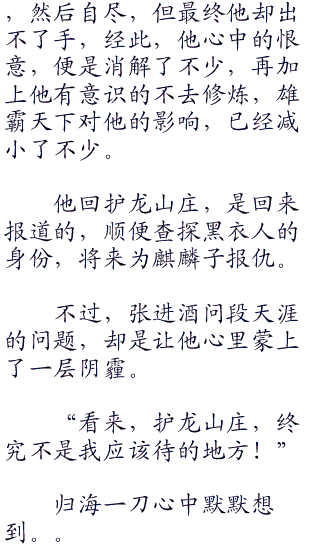 ，然后自尽，但最终他却出
不了手，经此，他心中的恨
意，便是消解了不少，再加
上他有意识的不去修炼，雄
霸天下对他的影响，已经减
小了不少。
他回护龙山庄，是回来
报道的，顺便查探黑衣人的
身份，将来为麒麟子报仇。
不过，张进酒问段天涯
的问题，却是让他心里蒙上
了一层阴霾。
“看来，护龙山庄，终
究不是我应该待的地方！”
归海一刀心中默默想
到。。